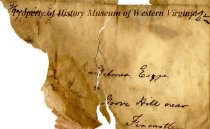 Property of History Museum of Western Virginia
Gilmer, Esqr
Grove Hill near
Fincastle